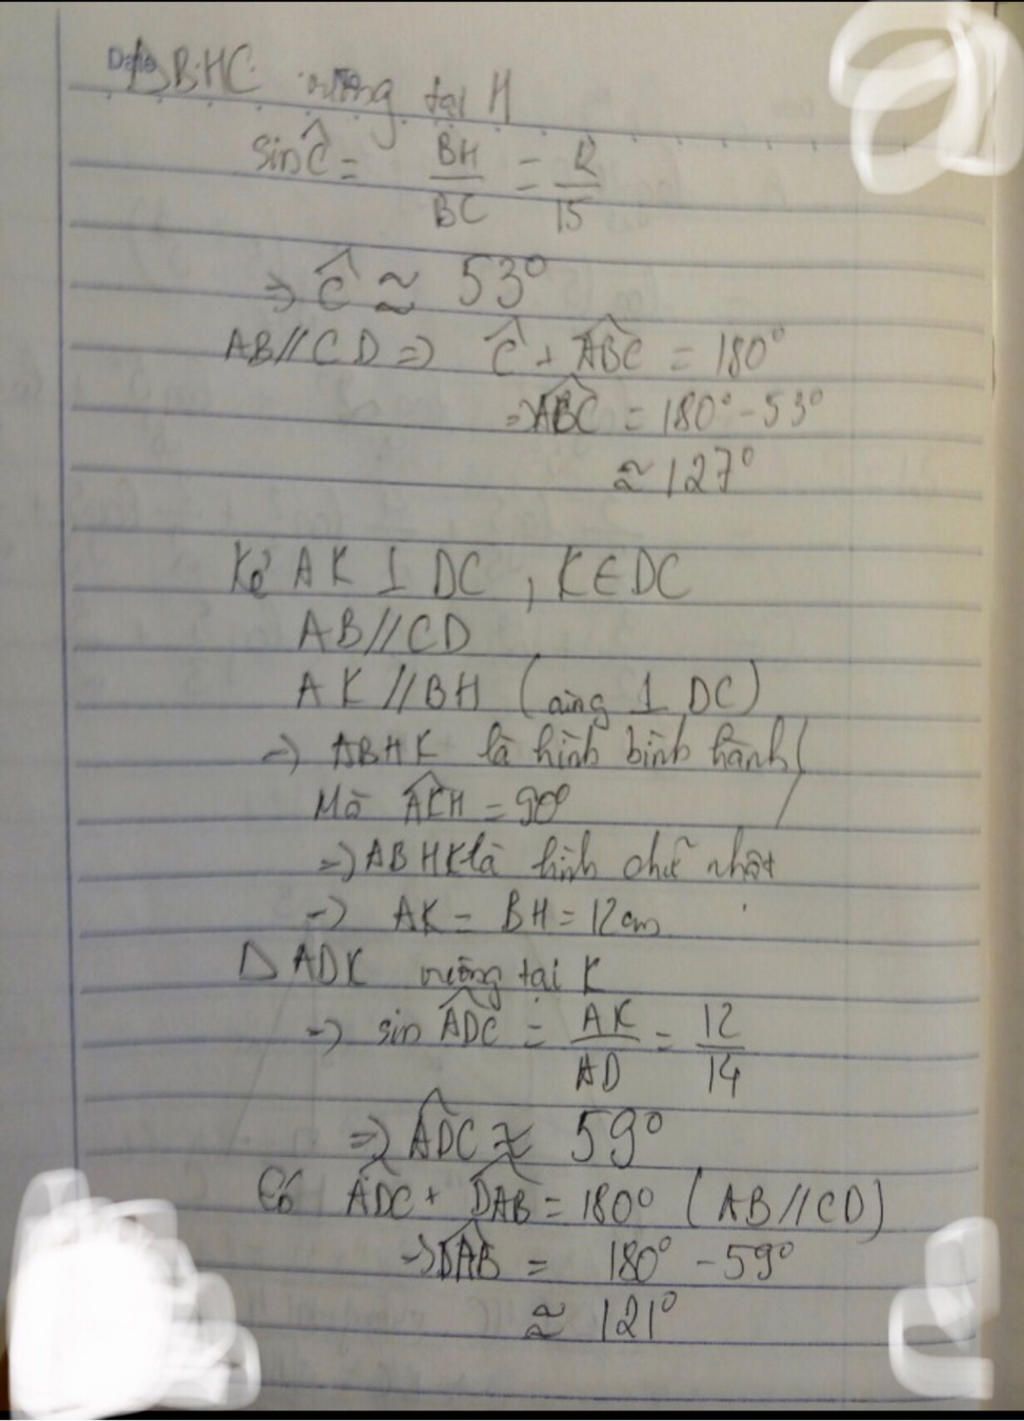 Date
ΔBHC vuông tại H
sin Ĉ = BH/BC = 12/15
⇒ Ĉ ≈ 53°
AB//CD ⇒ Ĉ + ABC = 180°
⇒ ABC = 180° - 53°
≈ 127°
Kẻ AK ⊥ DC, K∈DC
AB//CD
AK//BH (cùng ⊥ DC)
⇒ ABHK là hình bình hành
Mà AKH = 90°
⇒ ABHK là hình chữ nhật
⇒ AK = BH = 12cm
Δ ADK vuông tại K
⇒ sin ADC = AK/AD = 12/14
⇒ ADC ≈ 59°
Có ADC + DAB = 180° (AB//CD)
⇒ DAB = 180° - 59°
≈ 121°